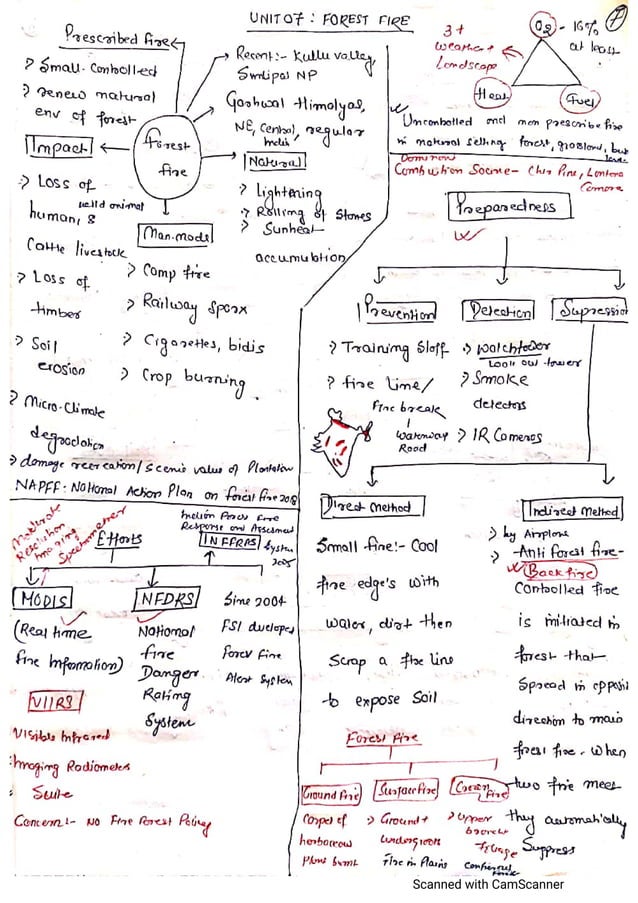 UNIT 07 : FOREST FIRE
7
Prescribed fire
> Small-Controlled
> renew natural
env of forest
Forest
fire
> Recent:- Kullu valley,
Simlipal NP
> Garhwal Himalyas,
NE, Central, regular
India
Natural
> Lightening
> Rolling of Stones
> Sunheat
accumubtion
Impact
> Loss of
human, & wild animal
Cattle livestock
> Loss of
timber
> Soil
erosion
> Micro-Climate
degradation
> damage recreation/scenic value of Plantation
Man-made
> Camp fire
> Railway Sparx
> Cigarettes, bidis
> Crop burning
NAPFF: National Action Plan on forest fire 2018
O2 - 16%
at least
Heat
Fuel
3 +
weather +
Landscape
Uncontrolled and non prescribe fire
in natural setting forest, grassland,
Combustion Source- Chir Pine, Lantana
Camara
Preparedness
Prevention
> Training Staff
> fire line/
Fire break
Waterway
Road
Detection
> watchtower
Look out tower
> Smoke
detectors
> IR Cameras
Supression
Direct Method
Small fire:- Cool
fire edge's with
water, dirt then
Scrap a fire line
to expose Soil
Indirect Method
> by Airplane
> Anti forest fire-
Back fire
Controlled fire
is initiated in
forest that
Spread in opposit
direction to main
forest fire. When
two fire meet
they automatically
Suppress
Efforts
Moderate
Resolution
Imaging
Spectrometer
MODIS
(Real time
fire Information)
NFDRS
National
fire
Danger
Rating
System
Indian Forest Fire
Response and Assessment
System
INFFRAS
Since 2004
FSI developed
Forest Fire
Alert System
VIIRS
Visible Infrared
Imaging Radiometer
Suite
Concern:- No Fire Forest Policy
Forest fire
Ground fire
Carpet of
herbaceous
Plant burnt
Surface fire
> Ground +
undergrowth
Fire in Plains
Crown
Fire
> upper
branch
foliage
Coniferous
Scanned with CamScanner